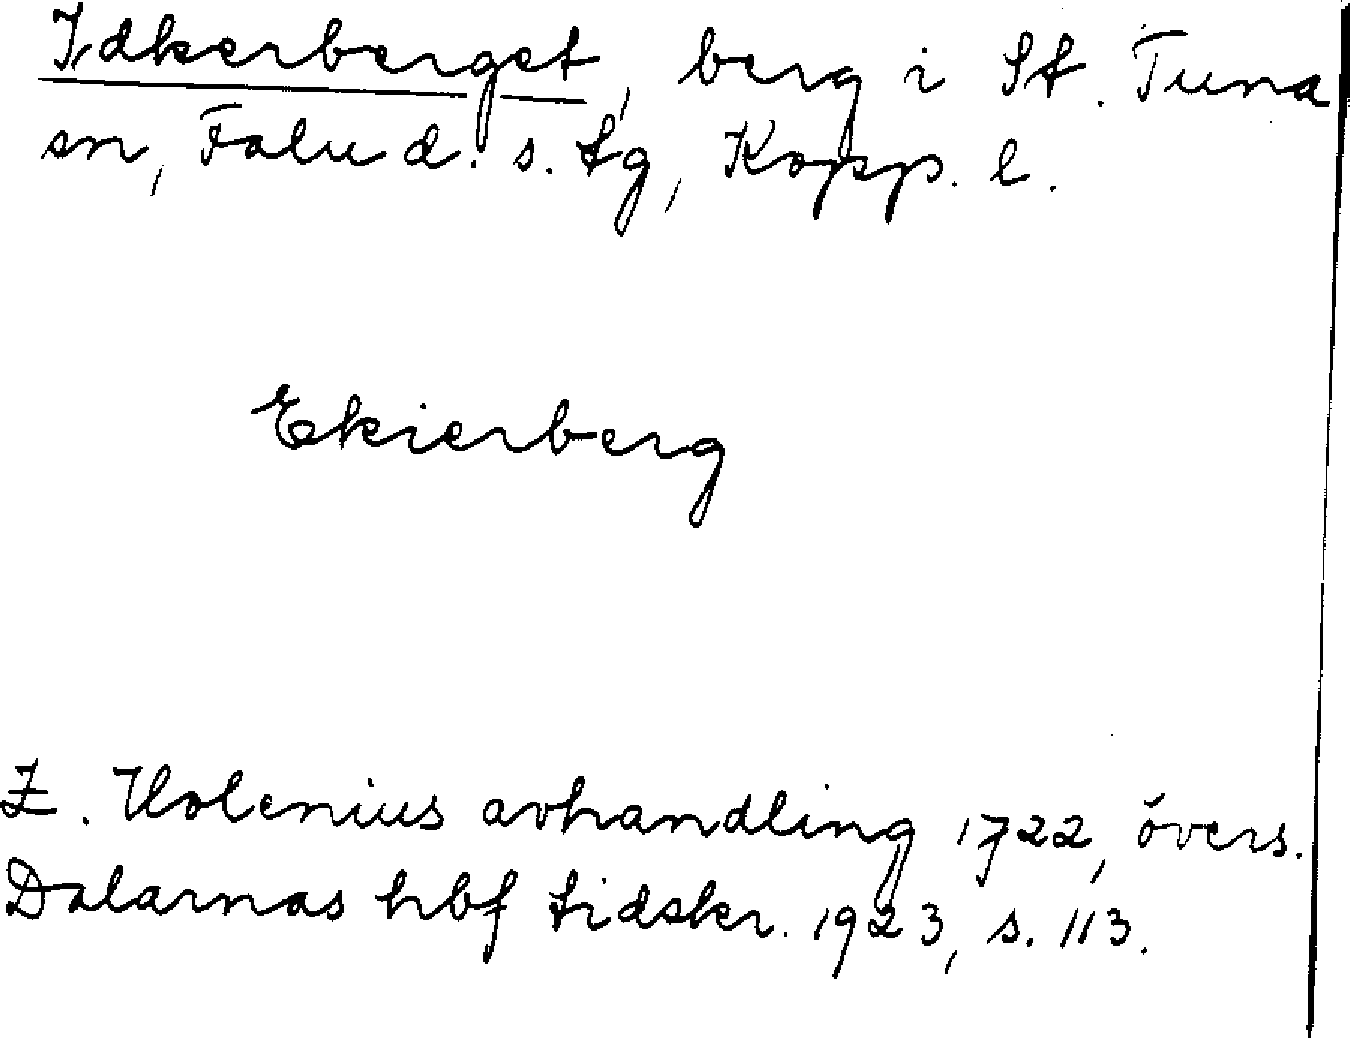 Idkerberget, berg i St. Tuna
sn, Falu d. s. tg, Kopp. l.
Ekierberg
Z. Holenius avhandling 1722, övers.
Dalarnas hbf tidskr. 1923, s. 113.